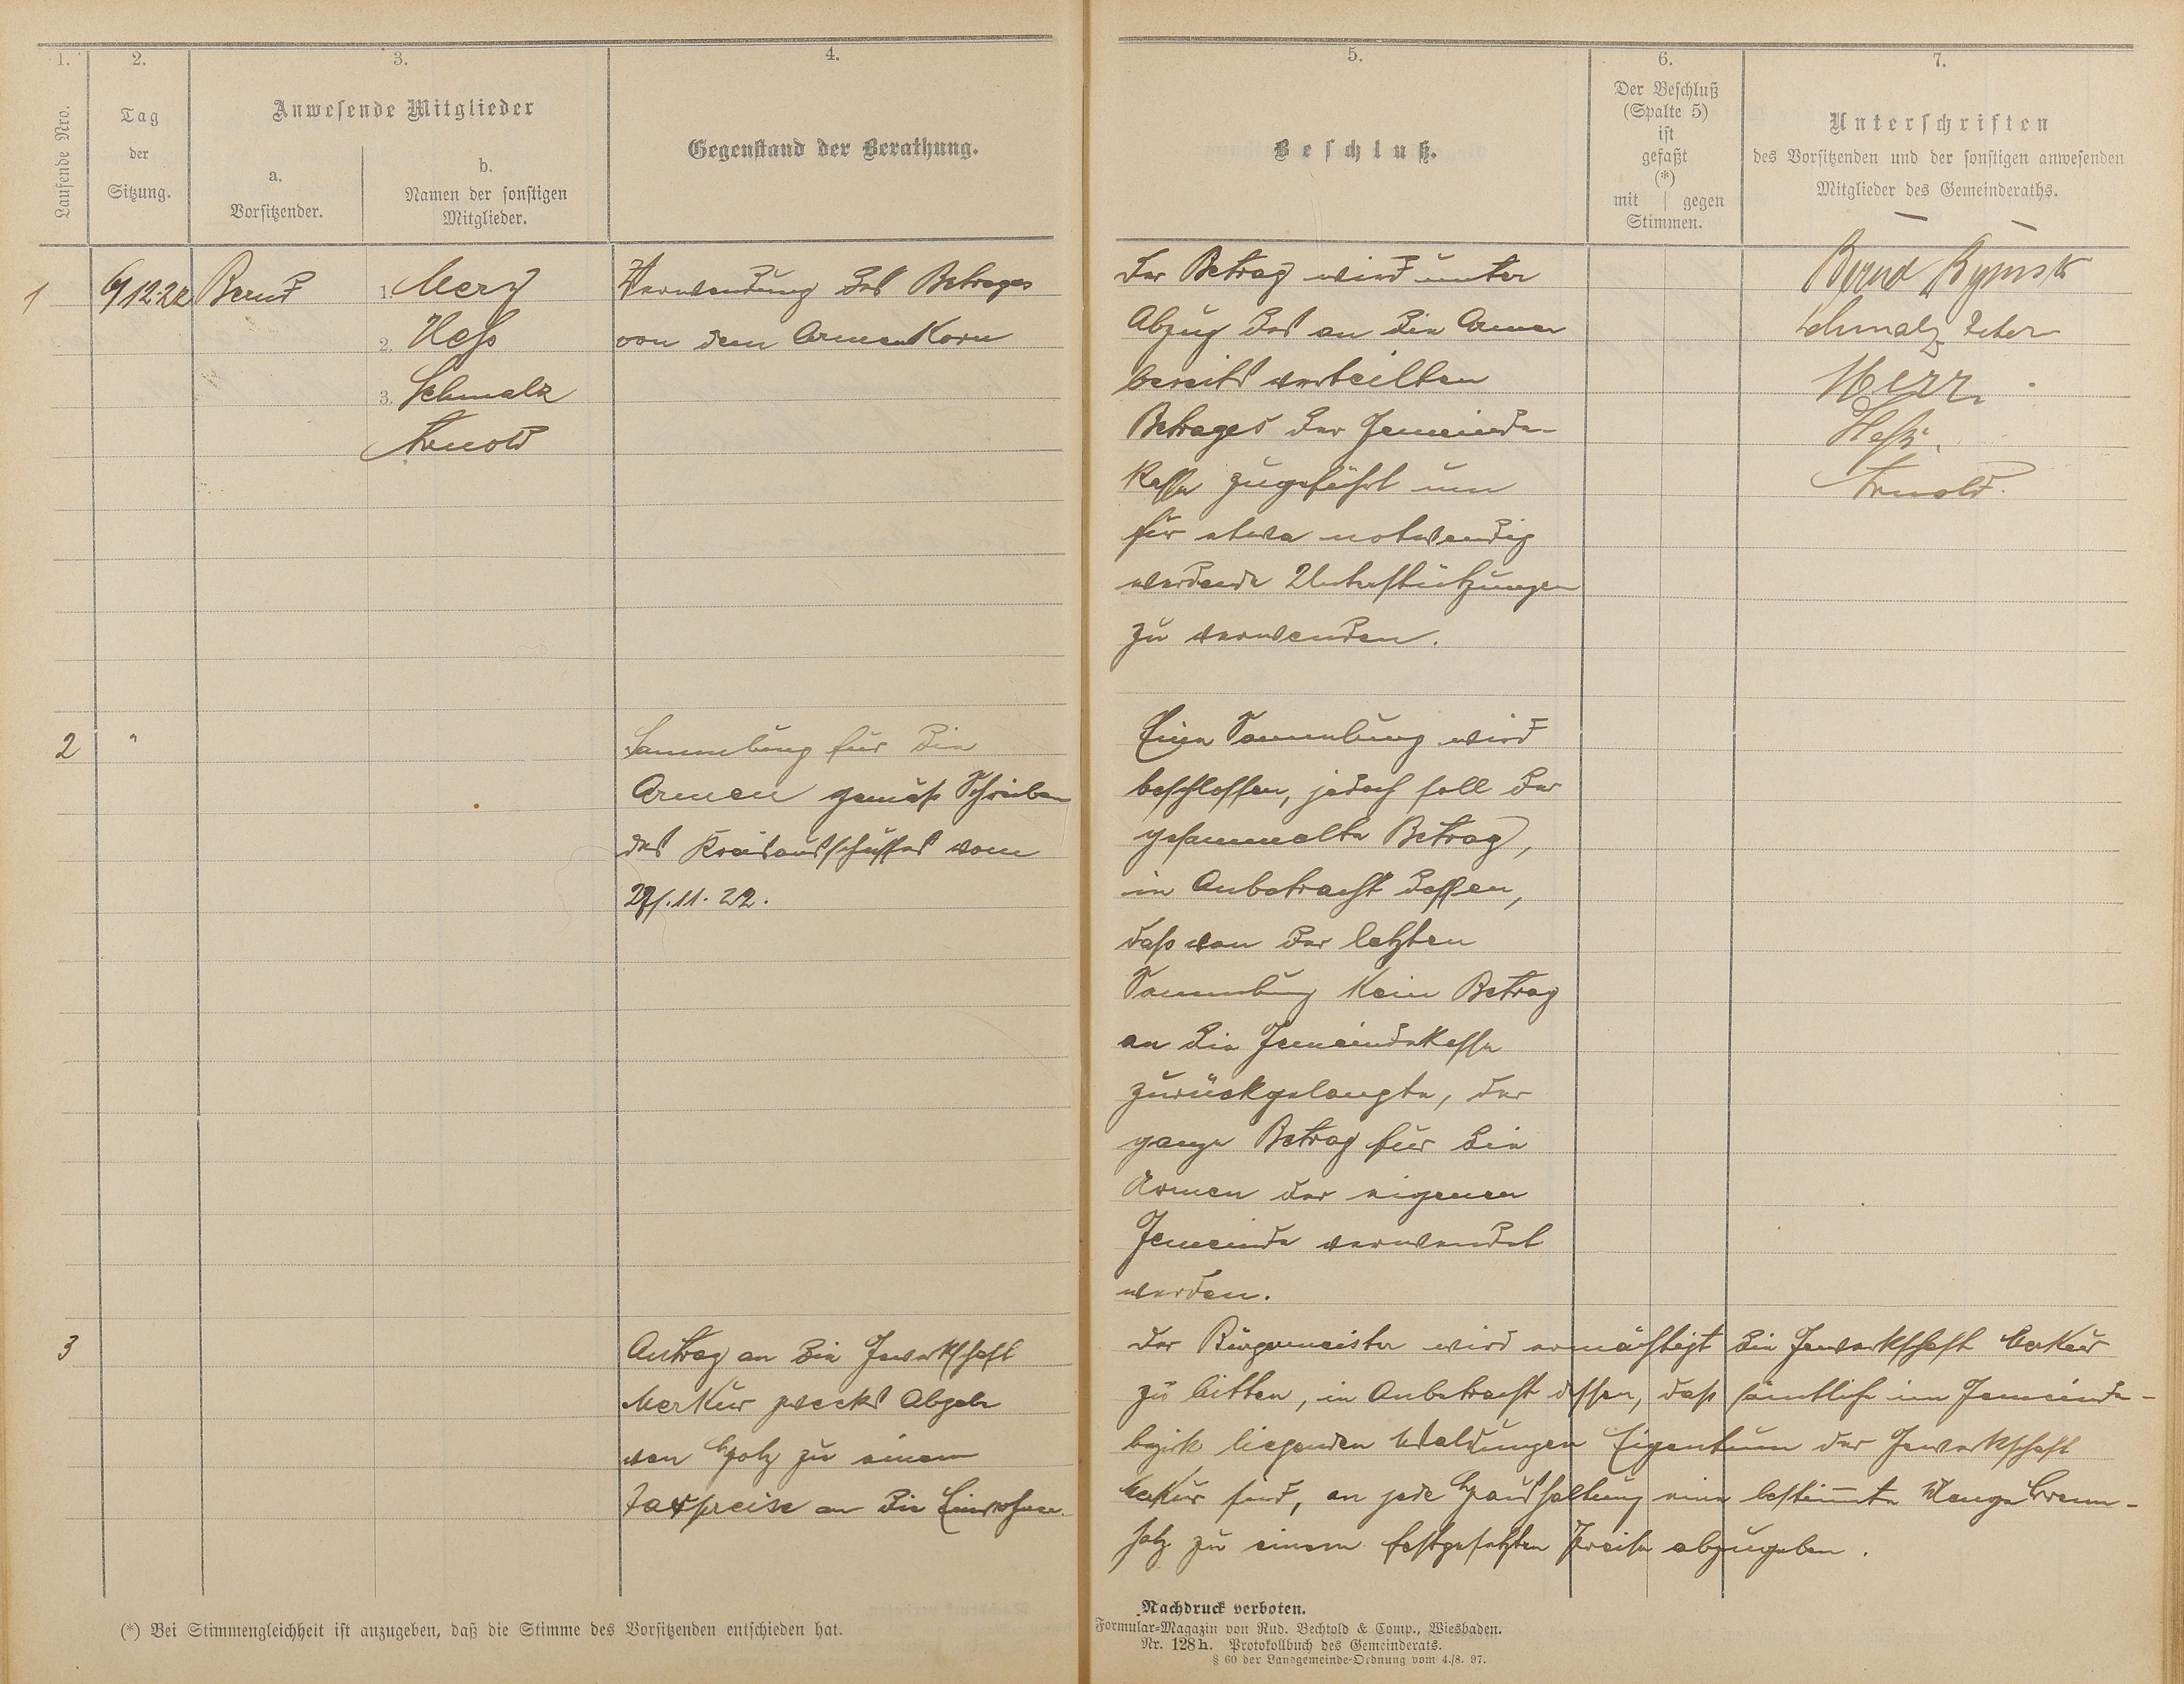 1.
2.
3.
4.
Laufende Nro.
Tag
der
Sitzung.
Anwesende Mitglieder
a.
Vorsitzender.
b.
Namen der sonstigen
Mitglieder.
Gegenstand der Berathung.
1
6/12.22
Bernd
1. Merz
2. Heß
3. Schmalz
Arnold
Verwendung des Betrages
von dem Armenkorn
2
"
Sammlung für die
Armen gemäß Schreiben
des Kreisausschusses vom
27.11.22.
3
Antrag an die Gewerkschaft
Merkur zwecks Abgabe
von Holz zu einem
Taxpreise an die Einwohner.
(*) Bei Stimmengleichheit ist anzugeben, daß die Stimme des Vorsitzenden entschieden hat.
5.
6.
7.
Beschluß.
Der Beschluß
(Spalte 5)
ist
gefaßt
(*)
mit | gegen
Stimmen.
Unterschriften
des Vorsitzenden und der sonstigen anwesenden
Mitglieder des Gemeinderaths.
Der Betrag wird unter
Abzug des an die Armen
bereits verteilten
Betrages der Gemeinde-
kasse zugeführt um
für etwa notwendig
werdende Unterstützungen
zu verwenden.
Bernd Bgmstr
Schmalz Peter
Merz.
Heß.
Arnold.
Eine Sammlung wird
beschlossen, jedoch soll der
gesammelte Betrag,
in Anbetracht dessen,
daß von der letzten
Sammlung kein Betrag
an die Gemeindekasse
zurückgelangte, der
ganze Betrag für die
Armen der eigenen
Gemeinde verwendet
werden.
Der Bürgermeister wird ermächtigt die Gewerkschaft Merkur
zu bitten, in Anbetracht dessen, daß sämtliche im Gemeinde-
bezirk liegenden Waldungen Eigentum der Gewerkschaft
Merkur sind, an jede Haushaltung eine bestimmte Menge Brenn-
holz zu einem festgesetzten Preise abzugeben.
Nachdruck verboten.
Formular-Magazin von Rud. Bechtold & Comp., Wiesbaden.
Nr. 128 h. Protokollbuch des Gemeinderats.
§ 60 der Landgemeinde-Ordnung vom 4./8. 97.